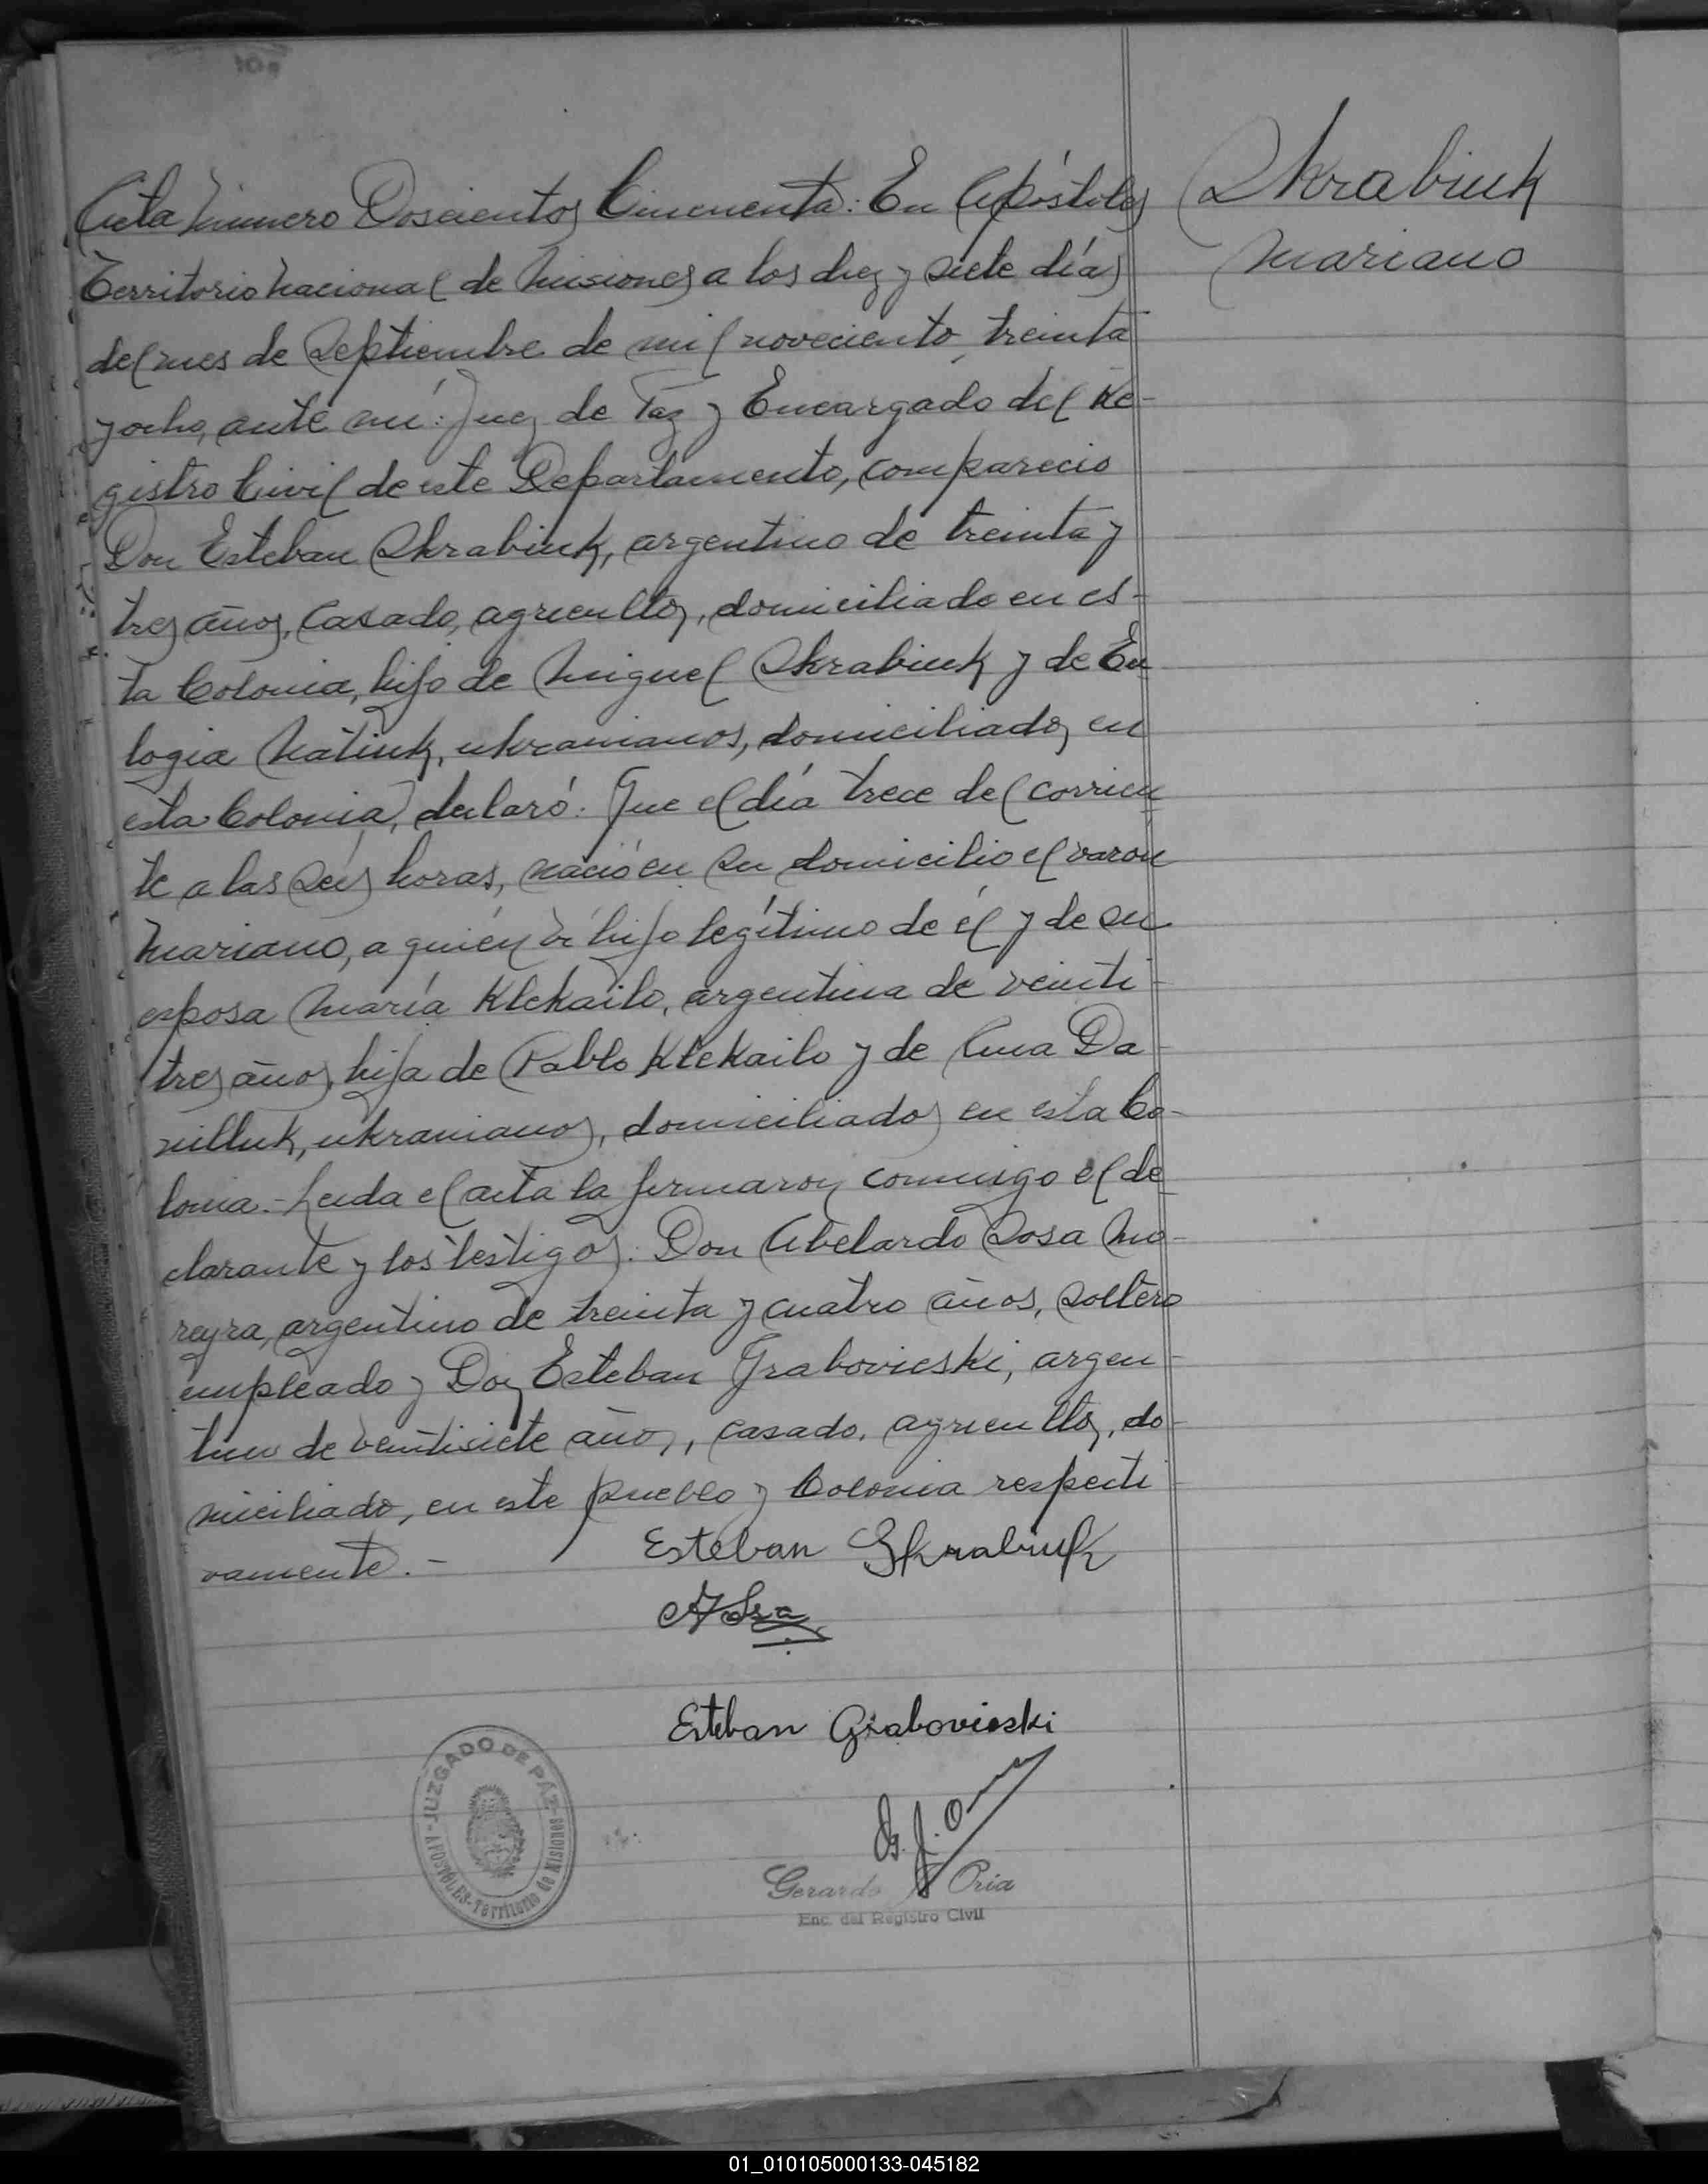 Skrabiuk
Mariano
Acta Número Doscientos Cincuenta: En Apóstoles
Territorio Nacional de Misiones a los diez y siete días
del mes de Septiembre de mil novecientos treinta
y ocho, ante mí: Juez de Paz y Encargado del Re-
gistro Civil de este Departamento, compareció
Don Esteban Skrabiuk, argentino de treinta y
tres años, casado, agricultor, domiciliado en es-
ta Colonia, hijo de Miguel Skrabiuk y de Eu
logia Natiuk, ukranianos, domiciliados en
esta Colonia, declaró: Que el día trece del corrien
te a las seis horas, nació en su domicilio el varon
Mariano, a quién ví hijo legítimo de él y de su
esposa María Klekailo, argentina de veinti-
tres años, hija de Pablo Klekailo y de Ana Da-
nilluk, ukranianos, domiciliados en esta Co-
lonia.- Leida el acta la firmaron conmigo el de
clarante y los testigos: Don Abelardo Sosa Mo-
reyra, argentino de treinta y cuatro años, soltero
empleado y Don Esteban Grabovieski, argen-
tino de ventisiete años, casado, agricultor, do-
miciliados, en este pueblo y Colonia respecti
vamente.-
Esteban Skrabiuk
ASosa
Esteban Grabovieski
JUZGADO DE PAZ
APOSTOLES - Territorio de Misiones
Gerardo Oria
Enc. del Registro Civil
01_010105000133-045182